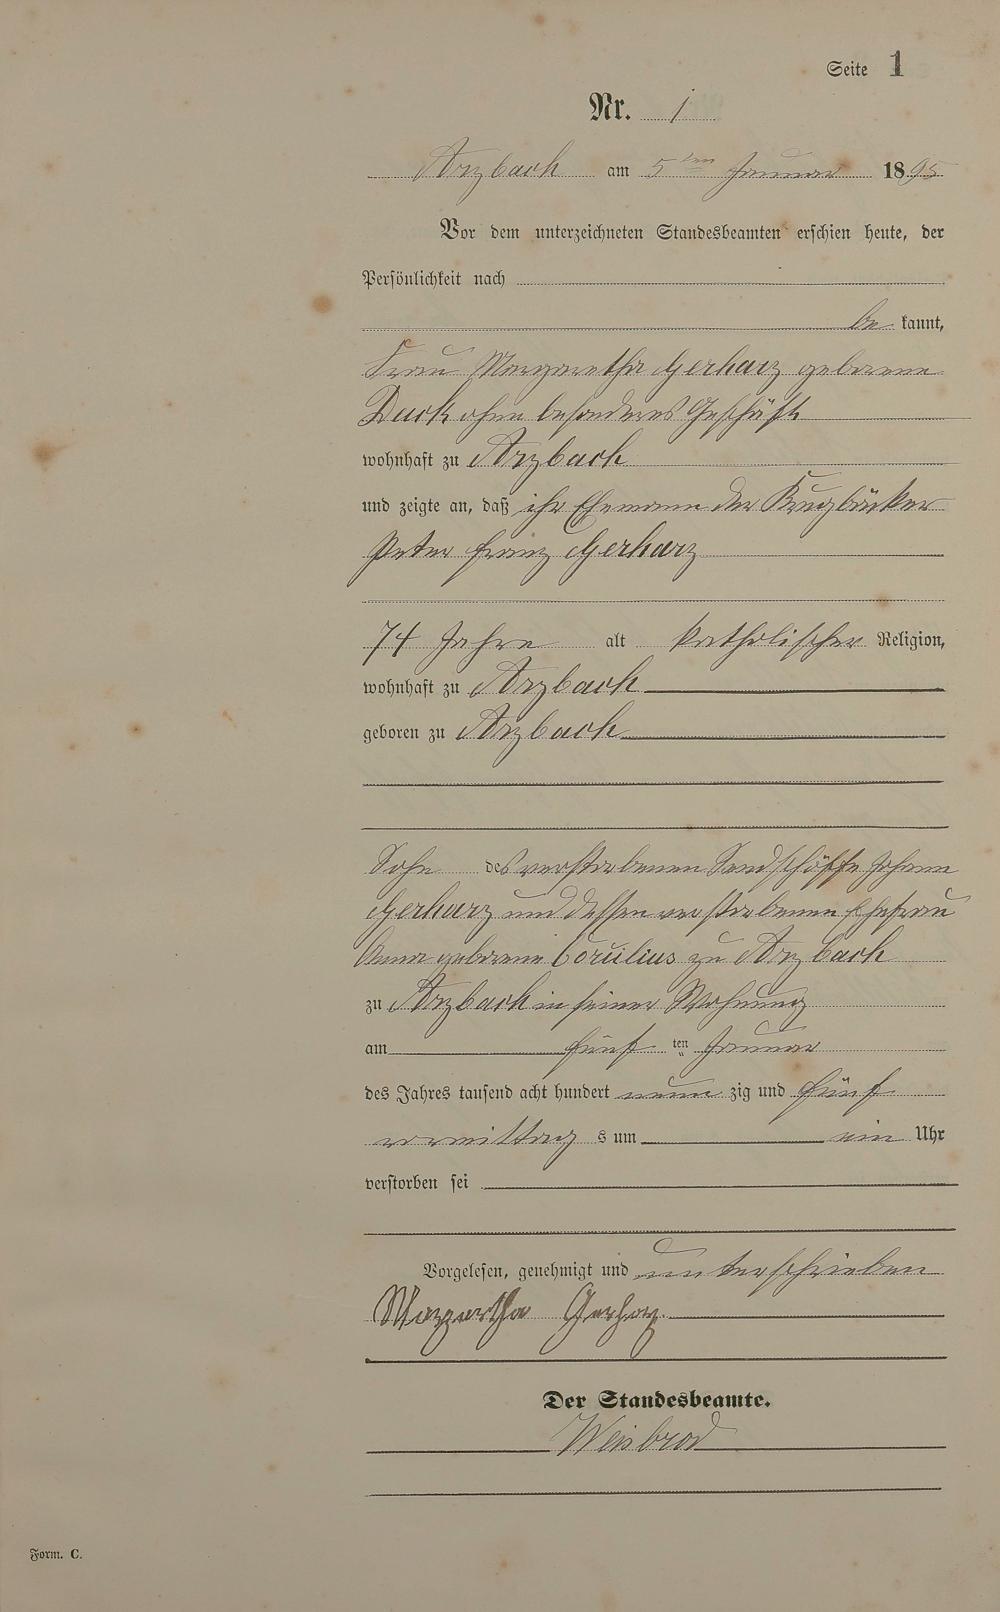 Seite 1
Nr. 1
Arzbach am 5ten Januar 1895
Vor dem unterzeichneten Standesbeamten erschien heute, der
Persönlichkeit nach
be kannt,
Frau Margaretha Gerharz geborene
Duck ohne besonderes Geschäft
wohnhaft zu Arzbach
und zeigte an, daß ihr Ehemann der Krugbäcker
Peter Franz Gerharz
74 Jahre alt katholischer Religion,
wohnhaft zu Arzbach
geboren zu Arzbach
Sohn des verstorbenen Johann
Gerharz und dessen verstorbenen Ehefrau
Anna geborene Corcilius zu Arzbach
zu Arzbach in seiner Wohnung
am fünf ten Januar
des Jahres tausend acht hundert neun zig und fünf
vormittag s um ein Uhr
verstorben sei
Vorgelesen, genehmigt und unterschrieben
Margartha Gerharz
Der Standesbeamte.
Weisbrod
Form. C.